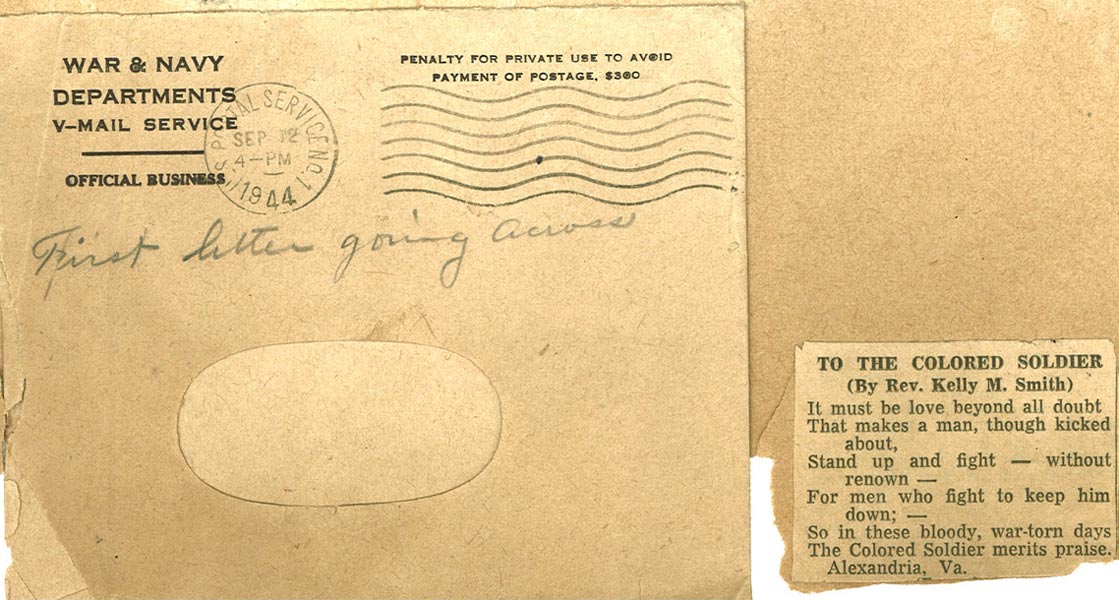 WAR & NAVY
DEPARTMENTS
V-MAIL SERVICE
OFFICIAL BUSINESS
U.S. POSTAL SERVICE NO. 1
SEP 12
4-PM
1944
PENALTY FOR PRIVATE USE TO AVOID
PAYMENT OF POSTAGE, $300
First letter going across
TO THE COLORED SOLDIER
(By Rev. Kelly M. Smith)
It must be love beyond all doubt
That makes a man, though kicked
about,
Stand up and fight — without
renown —
For men who fight to keep him
down; —
So in these bloody, war-torn days
The Colored Soldier merits praise.
Alexandria, Va.